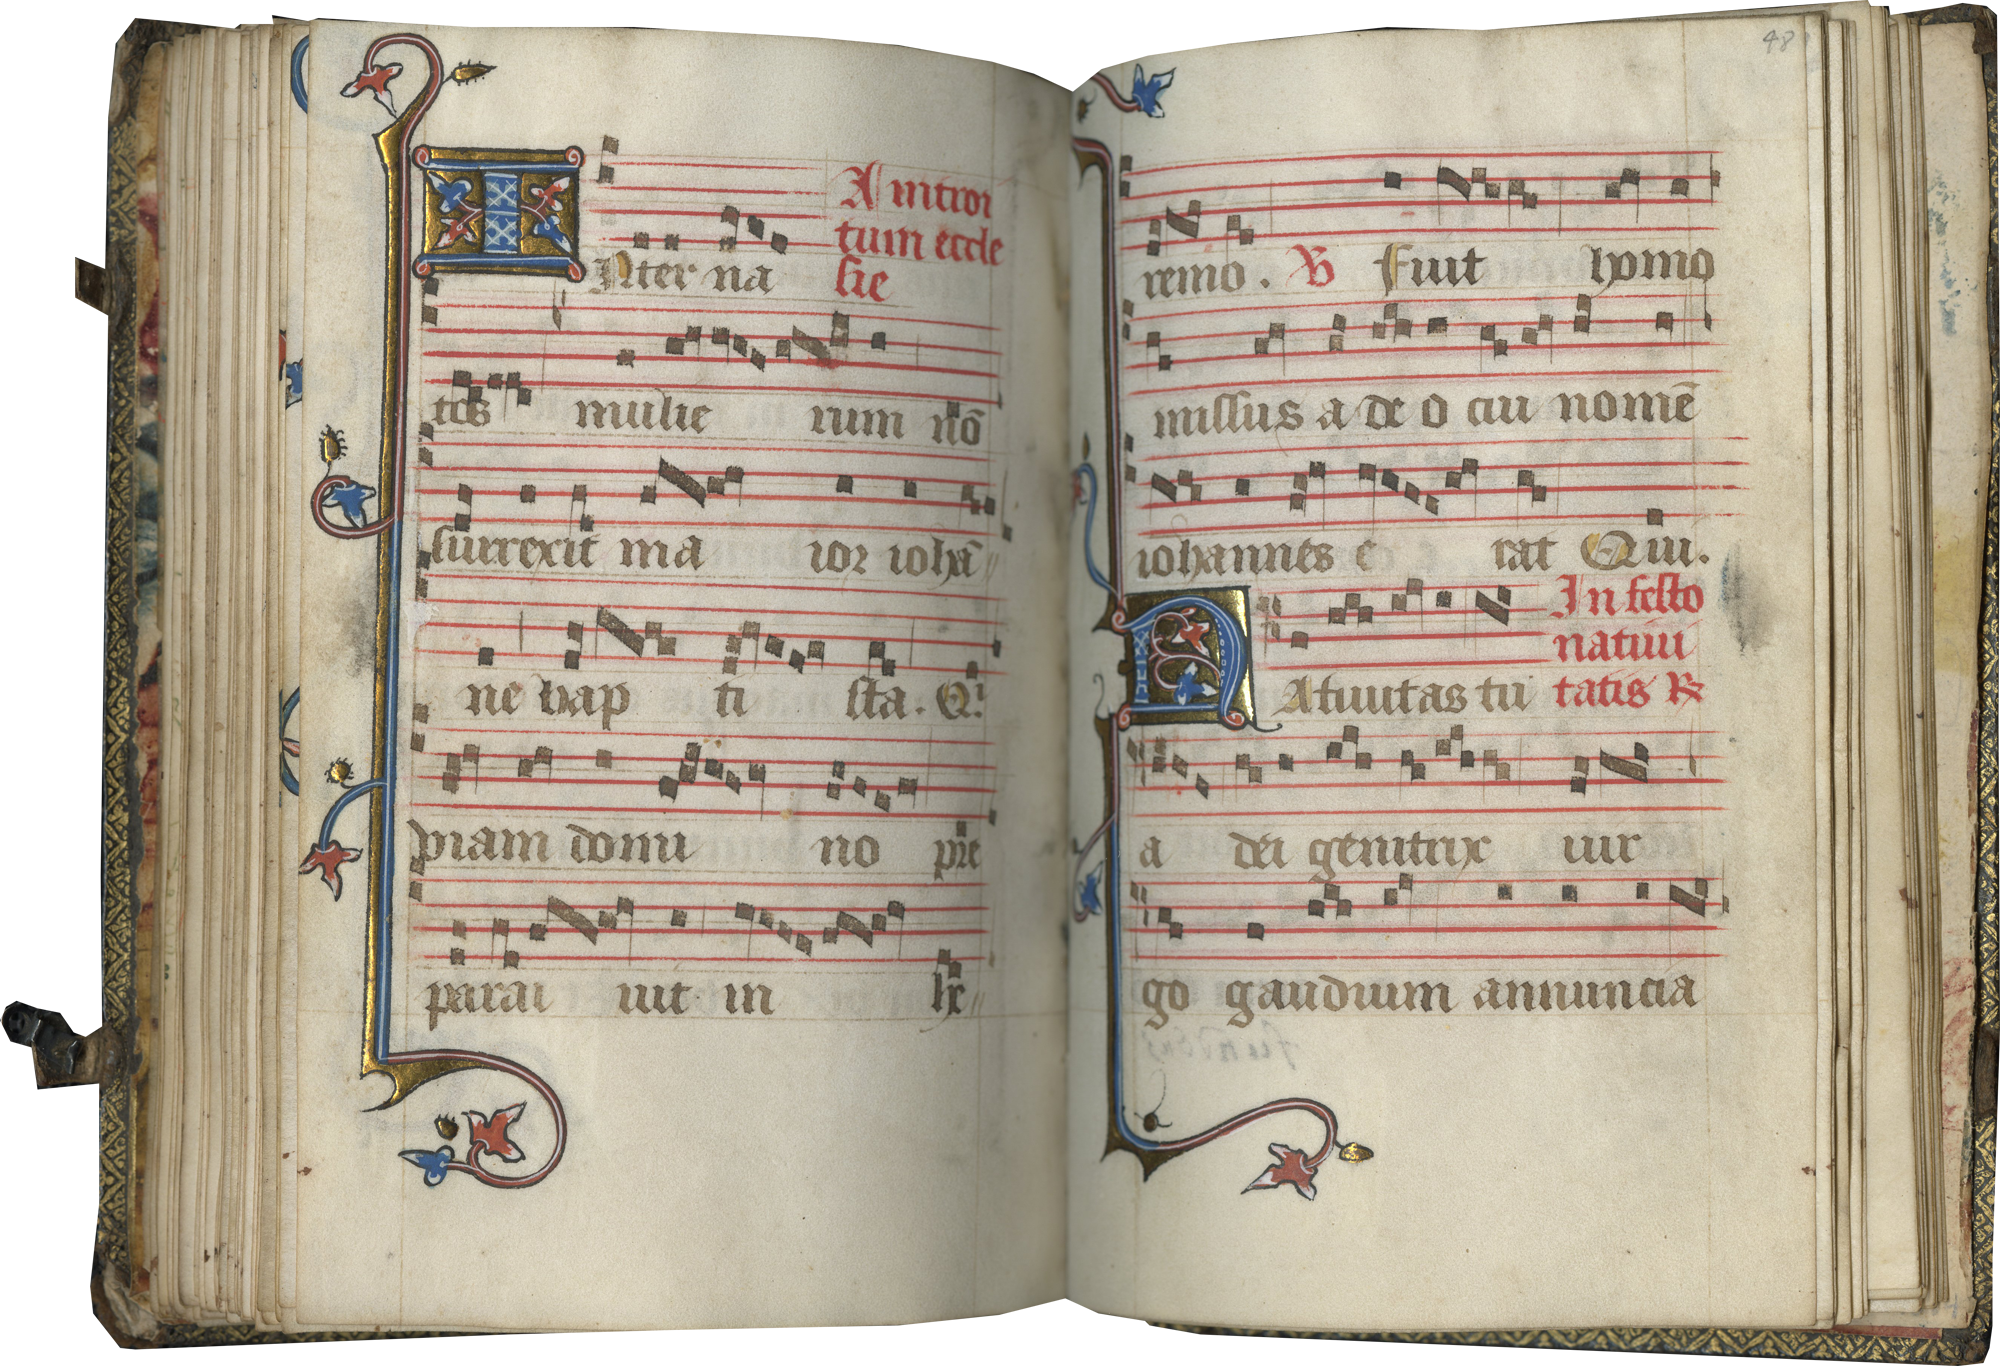 A introi
tum eccle
INter na sie
tos mulie rum nō
surrexit ma ior iohā
ne bap ti sta. Qͥ
viam domi no pre
parai uit in he
48
remo. V Fuit homo
missus a de o cui nomē
iohannes e rat Qui.
In festo
natiui
NAtiuitas tu tatis R
a dei genitrix uir
go gaudium annuncia